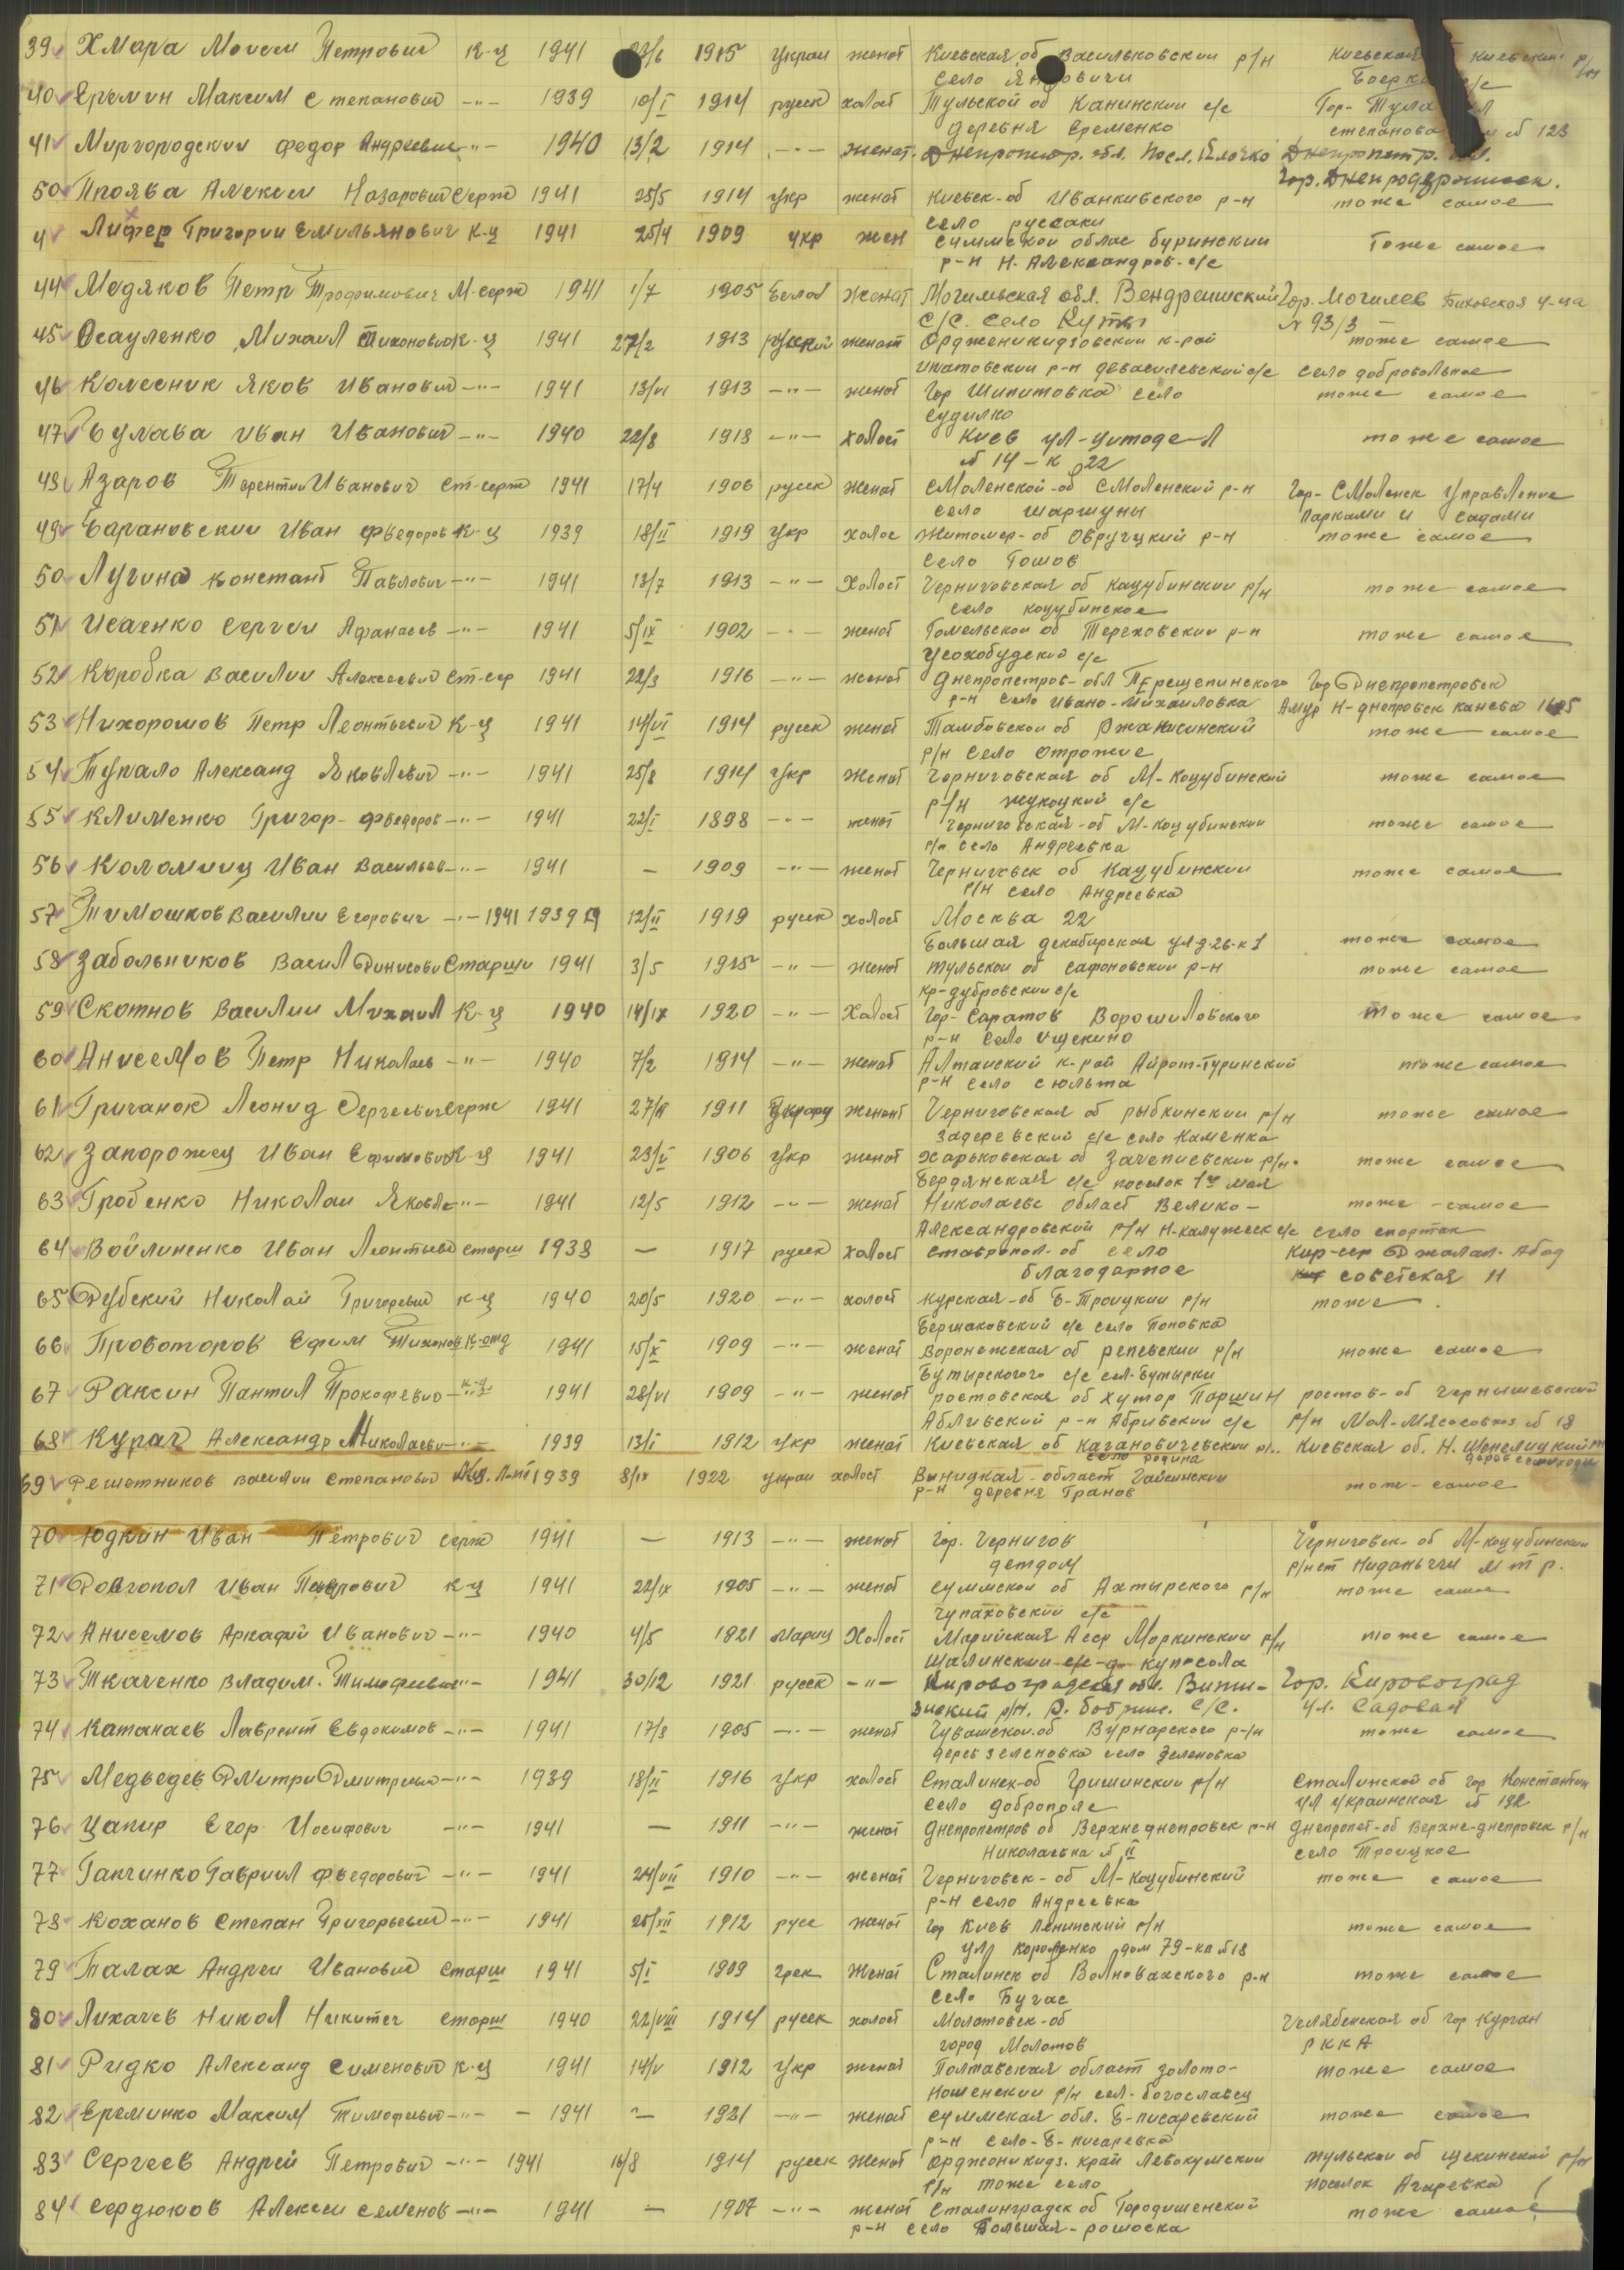 39 Хмара Моисеи Петрович К-ц 1941 1915 украи женат Киевская об Васильковскии р/н Киевская Киевскии р/н
село Боерк с/с
40 Еремин Максим Степанович -"- 1939 10/I 1914 русск холост Тульской об Канинскии с/с Гор- Тула
деревня Еременко степанова № 123
41 Миргородскии Федор Андреевич -"- 1940 13/2 1914 -"- женат. Днепропетр. обл. Посл. Клочко Днепропетр. обл.
Гор. Днепродзержинск.
50 Проява Алексеи Назарович Серж 1941 25/5 1914 укр женат Киевск-об Иванкивского р-н тоже самое
село руссаки
4 Лифер Григории Емильянович К-ц 1941 25/4 1909 укр жен Суммскои облас буринскии Тоже самое
р-н Н. Александров-с/с
44 Медяков Петр Трофимович М-серж 1941 1/7 1905 Белор женат Могильская обл. Вендрешский Гор. Могилев Биховская у-ца
с/с. село Куты № 93/3
45 Осауленко Михаил Тихонович К-ц 1941 27/2 1913 женат Орджоникидзовскии к-рай тоже самое
ипатовскии р-н девасилевский с/с село добровольное
46 Колесник Яков Иванович -"- 1941 13/VI 1913 -"- женат Гор Шипитовка село тоже самое
судилко
47 Булава Иван Иванович -"- 1940 22/8 1918 -"- холост Киев ул- тоже самое
№ 14-к 22
48 Азаров Терентии Иванович Ст-серж 1941 17/4 1906 русск женат Смоленской-об Смоленский р-н Гор-Смоленск Управление
село шаршуны Парками и садами
49 Барановскии Иван Фведоров К-ц 1939 18/II 1919 укр холос Житомер-об Овручуцкий р-н тоже самое
село Тошов
50 Лугина Констант Павлович -"- 1941 13/7 1913 -"- Холост Черниговская об Кацубинскии р/н тоже самое
село коцубинское
51 Исаенко Сергеи Афанасев -"- 1941 5/IX 1902 -"- женат Гомельскои об Тереховскии р-н тоже самое
Усохобудский с/с
52 Коробка Василии Алексеевич Ст-сер 1941 22/3 1916 -"- женат Днепропетров-обл Перещепинского Гор Днепропетровск
р-н село Ивано-Михаиловка Амур Н-днепровск канева
53 Нихорошов Петр Леонтьевич К-ц 1941 14/VI 1914 русск женат Тамбовскои об Ржаксинский тоже самое
р/н село отрожие
54 Тупало Александ Яковлевич -"- 1941 25/8 1914 укр женат Черниговская об М-Коцубинский тоже самое
р/н жукоцкий с/с
55 Клименко Григор- Фведоров -"- 1941 22/I 1898 -"- женат Черниговская-об М-Коцубинскои тоже самое
р/н село Андреевка
56 Коломииц Иван Васильев -"- 1941 — 1909 -"- женат Черниговск об Кацубинскии тоже самое
р/н село Андреевка
57 Тимошков Василии Егорович -"- 1941 1939 12/II 1919 русск холост Москва 22
Большая декабирская ул д-26-к 1 тоже самое
58 Забольников Васил Динисови Старши 1941 3/5 1915 -"- женат тульскои об сафоновскии р-н тоже самое
кр-дубровскии с/с
59 Скотнов Василии Михаил К-ц 1940 14/IX 1920 -"- Холост Гор-Саратов Ворошиловского тоже самое
р-н село ищекино
60 Анисемов Петр Николаев -"- 1940 7/2 1914 -"- женат Алтаиский к-рай Айрот-Туринский тоже самое
р-н село сюльта
61 Гричанок Леонид Сергеевич Серж 1941 1911 женат Черниговская об рыбкинскии р/н тоже самое
задеревский с/с село Каменка
62 Запорожец Иван Ефимович К-ц 1941 23/V 1906 укр женат Харьковская об Зачепиевскии р/н. тоже самое
Бердянская с/с поселок 1го мая
63 Гробенко Николаи Яковле -"- 1941 12/5 1912 -"- женат Николаевс област Велико- тоже-самое
Александровский р/н Н-калужск с/с село спортак
64 Войлиненко Иван Леонтьев старш 1938 — 1917 русск холост ставропол-об село Кир-сср Джалал-Абад
благодарное советская 11
65 Дубский Николай Григоревич к-ц 1940 20/5 1920 -"- холост курская-об Б-Троицкии р/н тоже
Бершаковский с/с село Поповка
66 Провоторов Ефим Тихонов К-отд 1941 15/X 1909 -"- женат Воронежская об репевскии р/н тоже самое
Бутырского с/с сел-Бутырки
67 Раксин Пантил Прокофевич к-ц 1941 28/VI 1909 -"- женат ростовская об хутор Паршин ростов-об Чернышевский
Абливский р-н Абривский с/с р/н Мол-Мясосовхоз № 18
68 Курач Александр Миколаеви -"- 1939 13/I 1912 укр женат Киевская об Кагановичевскии р/. Киевская об. Н.
село родина
69 Решетников василии Степанович 1939 8/IX 1922 украи холост Виницкая-област Гайсинскии тоже-самое
р-н деревня Гранов
70 Юдкин Иван Петрович серж 1941 — 1913 -"- женат Гор. Чернигов Черниговск-об М-коцубинскии
детдом р/н ст Ниданьчи МТР.
71 Довгопол Иван Павлович к-ц 1941 22/IX 1905 -"- женат суммскои об Ахтырского р/н тоже самое
Чупаховскии с/с
72 Анисемов Аркадий Иванович -"- 1940 4/5 1921 мариц Холост Марийская Асср Моркинскии р/н тоже самое
Шалинскии с/с-д- купосола
73 Ткаченко Владим. Тимофеевич -"- 1941 30/12 1921 русск -"- Кировоградская обл. Вити- Гор. Кировоград
зиский р/н. Д. бобрин. с/с. ул. Садовая
74 Катанаев Лаврент Евдокимов -"- 1941 17/8 1905 -"- женат Чувашской-об Вурнарского р-н тоже самое
дерев зеленовка село Зеленовка
75 Медведев Дмитри Дмитреевич -"- 1939 18/II 1916 укр холост Сталинск-об Гришинскии р/н Сталинской об гор Константин
село доброполе ул украинская № 192
76 Цапир Егор Иосифович -"- 1941 — 1911 -"- женат Днепропетров об Верхнеднепровск р-н Днепропет-об Верхне-днепровск р/н
Николаевка № II село Троицкое
77 Гапчинко Гавриил Фведорович -"- 1941 24/VII 1910 -"- женат Черниговск-об М-Коцубинский тоже самое
р-н село Андреевка
78 Коханов Степан Григорьевич -"- 1941 25/XII 1912 русс женат Гор Киев Ленинский р/н тоже самое
ул короленко дом 79-кв № 18
79 Палах Андреи Иванович Старш 1941 5/I 1909 грек Женат Сталинск об Волновахского р-н тоже самое
село Бугас
80 Лихачев Никол Никитич Старш 1940 22/VIII 1914 русск холост Молотовск-об Челябенская об гор Курган
город Молотов РККА
81 Ридко Александ Сименович К-ц 1941 14/V 1912 укр женат Полтавская област золото- тоже самое
ношенскии р/н сел-богославец
82 Ереминко Максим Тимофевич -"- - 1941 — 1921 -"- женат суммская обл. Б-писаревский тоже самое
р-н село-Б-писаревка
83 Сергеев Андрей Петрович -"- 1941 16/8 1914 русск женат орджоникидз. край Левокумскии тульскои об щекинской р/н
р/н тоже село поселок Агаревка
84 Сердюков Алексеи Семенов -"- 1941 — 1907 -"- женат Сталинградск об Городишенский тоже самое
р-н село Большая-рошоска